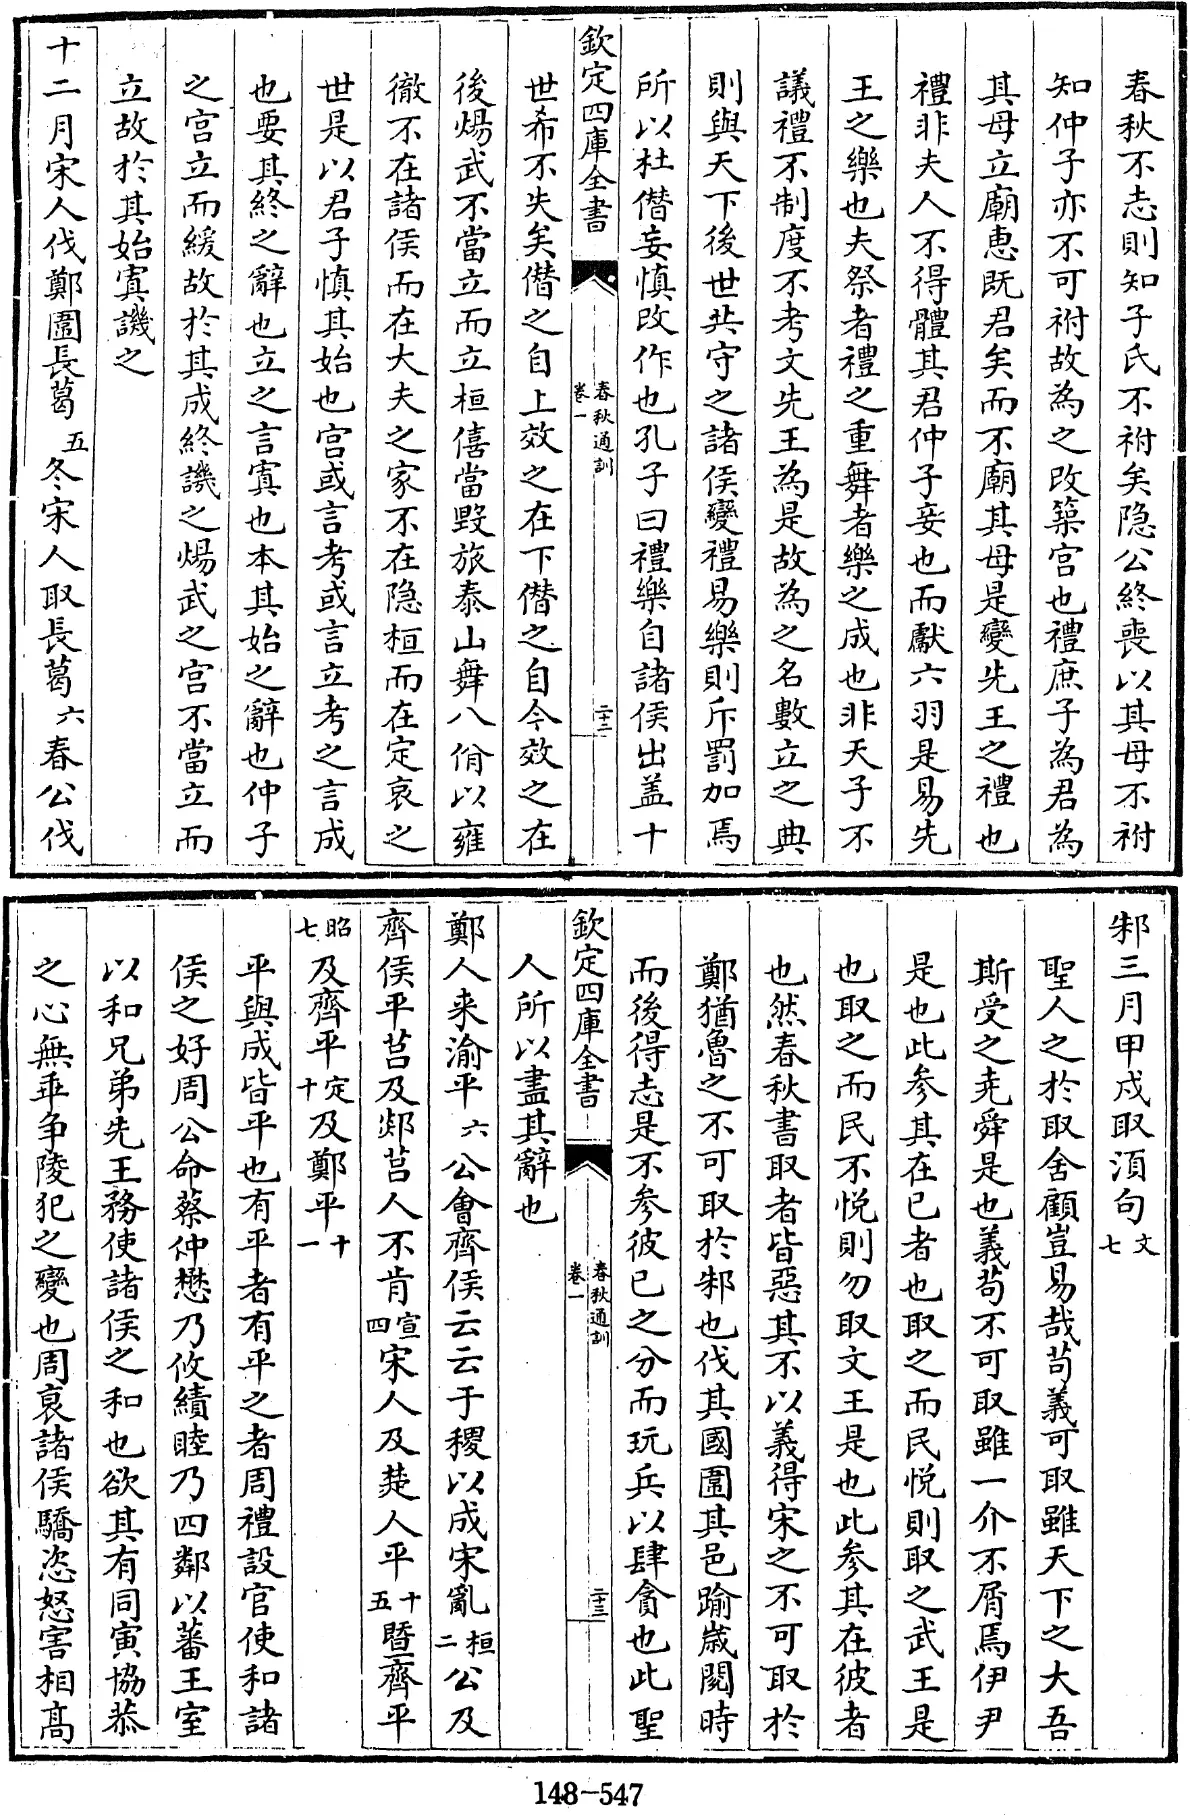 春秋不志則知子氏不祔矣隐公終喪以其母不祔
知仲子亦不可祔故為之改築宫也禮庶子為君為
其母立廟惠既君矣而不廟其母是變先王之禮也
禮非夫人不得體其君仲子妾也而獻六羽是易先
王之樂也夫祭者禮之重舞者樂之成也非天子不
議禮不制度不考文先王為是故為之名數立之典
則與天下後世共守之諸侯變禮易樂則斥罰加焉
所以杜僣妄慎改作也孔子曰禮樂自諸侯出盖十
欽定四庫全書
春秋通訓
卷一
二十二
世希不失矣僣之自上效之在下僣之自今效之在
後煬武不當立而立桓僖當毁旅泰山舞八佾以雍
徹不在諸侯而在大夫之家不在隐桓而在定哀之
世是以君子慎其始也宫或言考或言立考之言成
也要其終之辭也立之言寘也本其始之辭也仲子
之宫立而緩故於其成終譏之煬武之宫不當立而
立故於其始寘譏之
十二月宋人伐鄭圍長葛五冬宋人取長葛六春公伐
邾三月甲戍取湏句文七
聖人之於取舍顧豈易哉苟義可取雖天下之大吾
斯受之堯舜是也義苟不可取雖一介不屑焉伊尹
是也此参其在已者也取之而民悦則取之武王是
也取之而民不悦則勿取文王是也此参其在彼者
也然春秋書取者皆惡其不以義得宋之不可取於
鄭猶魯之不可取於邾也伐其國圍其邑踰歳閱時
而後得志是不参彼已之分而玩兵以肆貪也此聖
欽定四庫全書
春秋通訓
卷一
二十三
人所以盡其辭也
鄭人来渝平六公會齊侯云云于稷以成宋亂桓二公及
齊侯平莒及郯莒人不肯宣四宋人及楚人平十五暨齊平
昭七及齊平定十及鄭平十一
平與成皆平也有平者有平之者周禮設官使和諸
侯之好周公命蔡仲懋乃攸績睦乃四鄰以蕃王室
以和兄弟先王務使諸侯之和也欲其有同寅協恭
之心無乖争陵犯之變也周衰諸侯驕恣怒害相髙
148-547